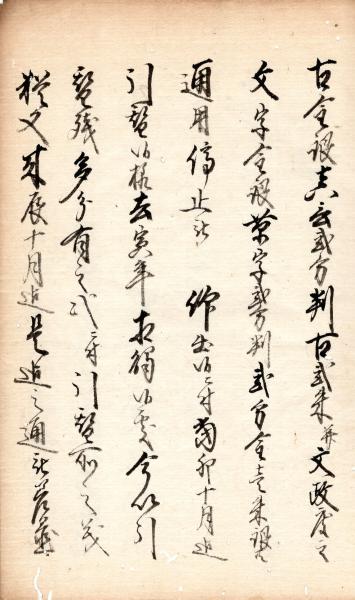 古金銀真字弐分判古弐朱并文政度之
文字金銀草字弐分判弐分金壱朱銀
通用停止被 仰出候ニ付当卯十月迄
引替候様去寅年相触候処今以引
替残多分有之候ニ付引替所之義
猶又来辰十月迄是迄之通被差置